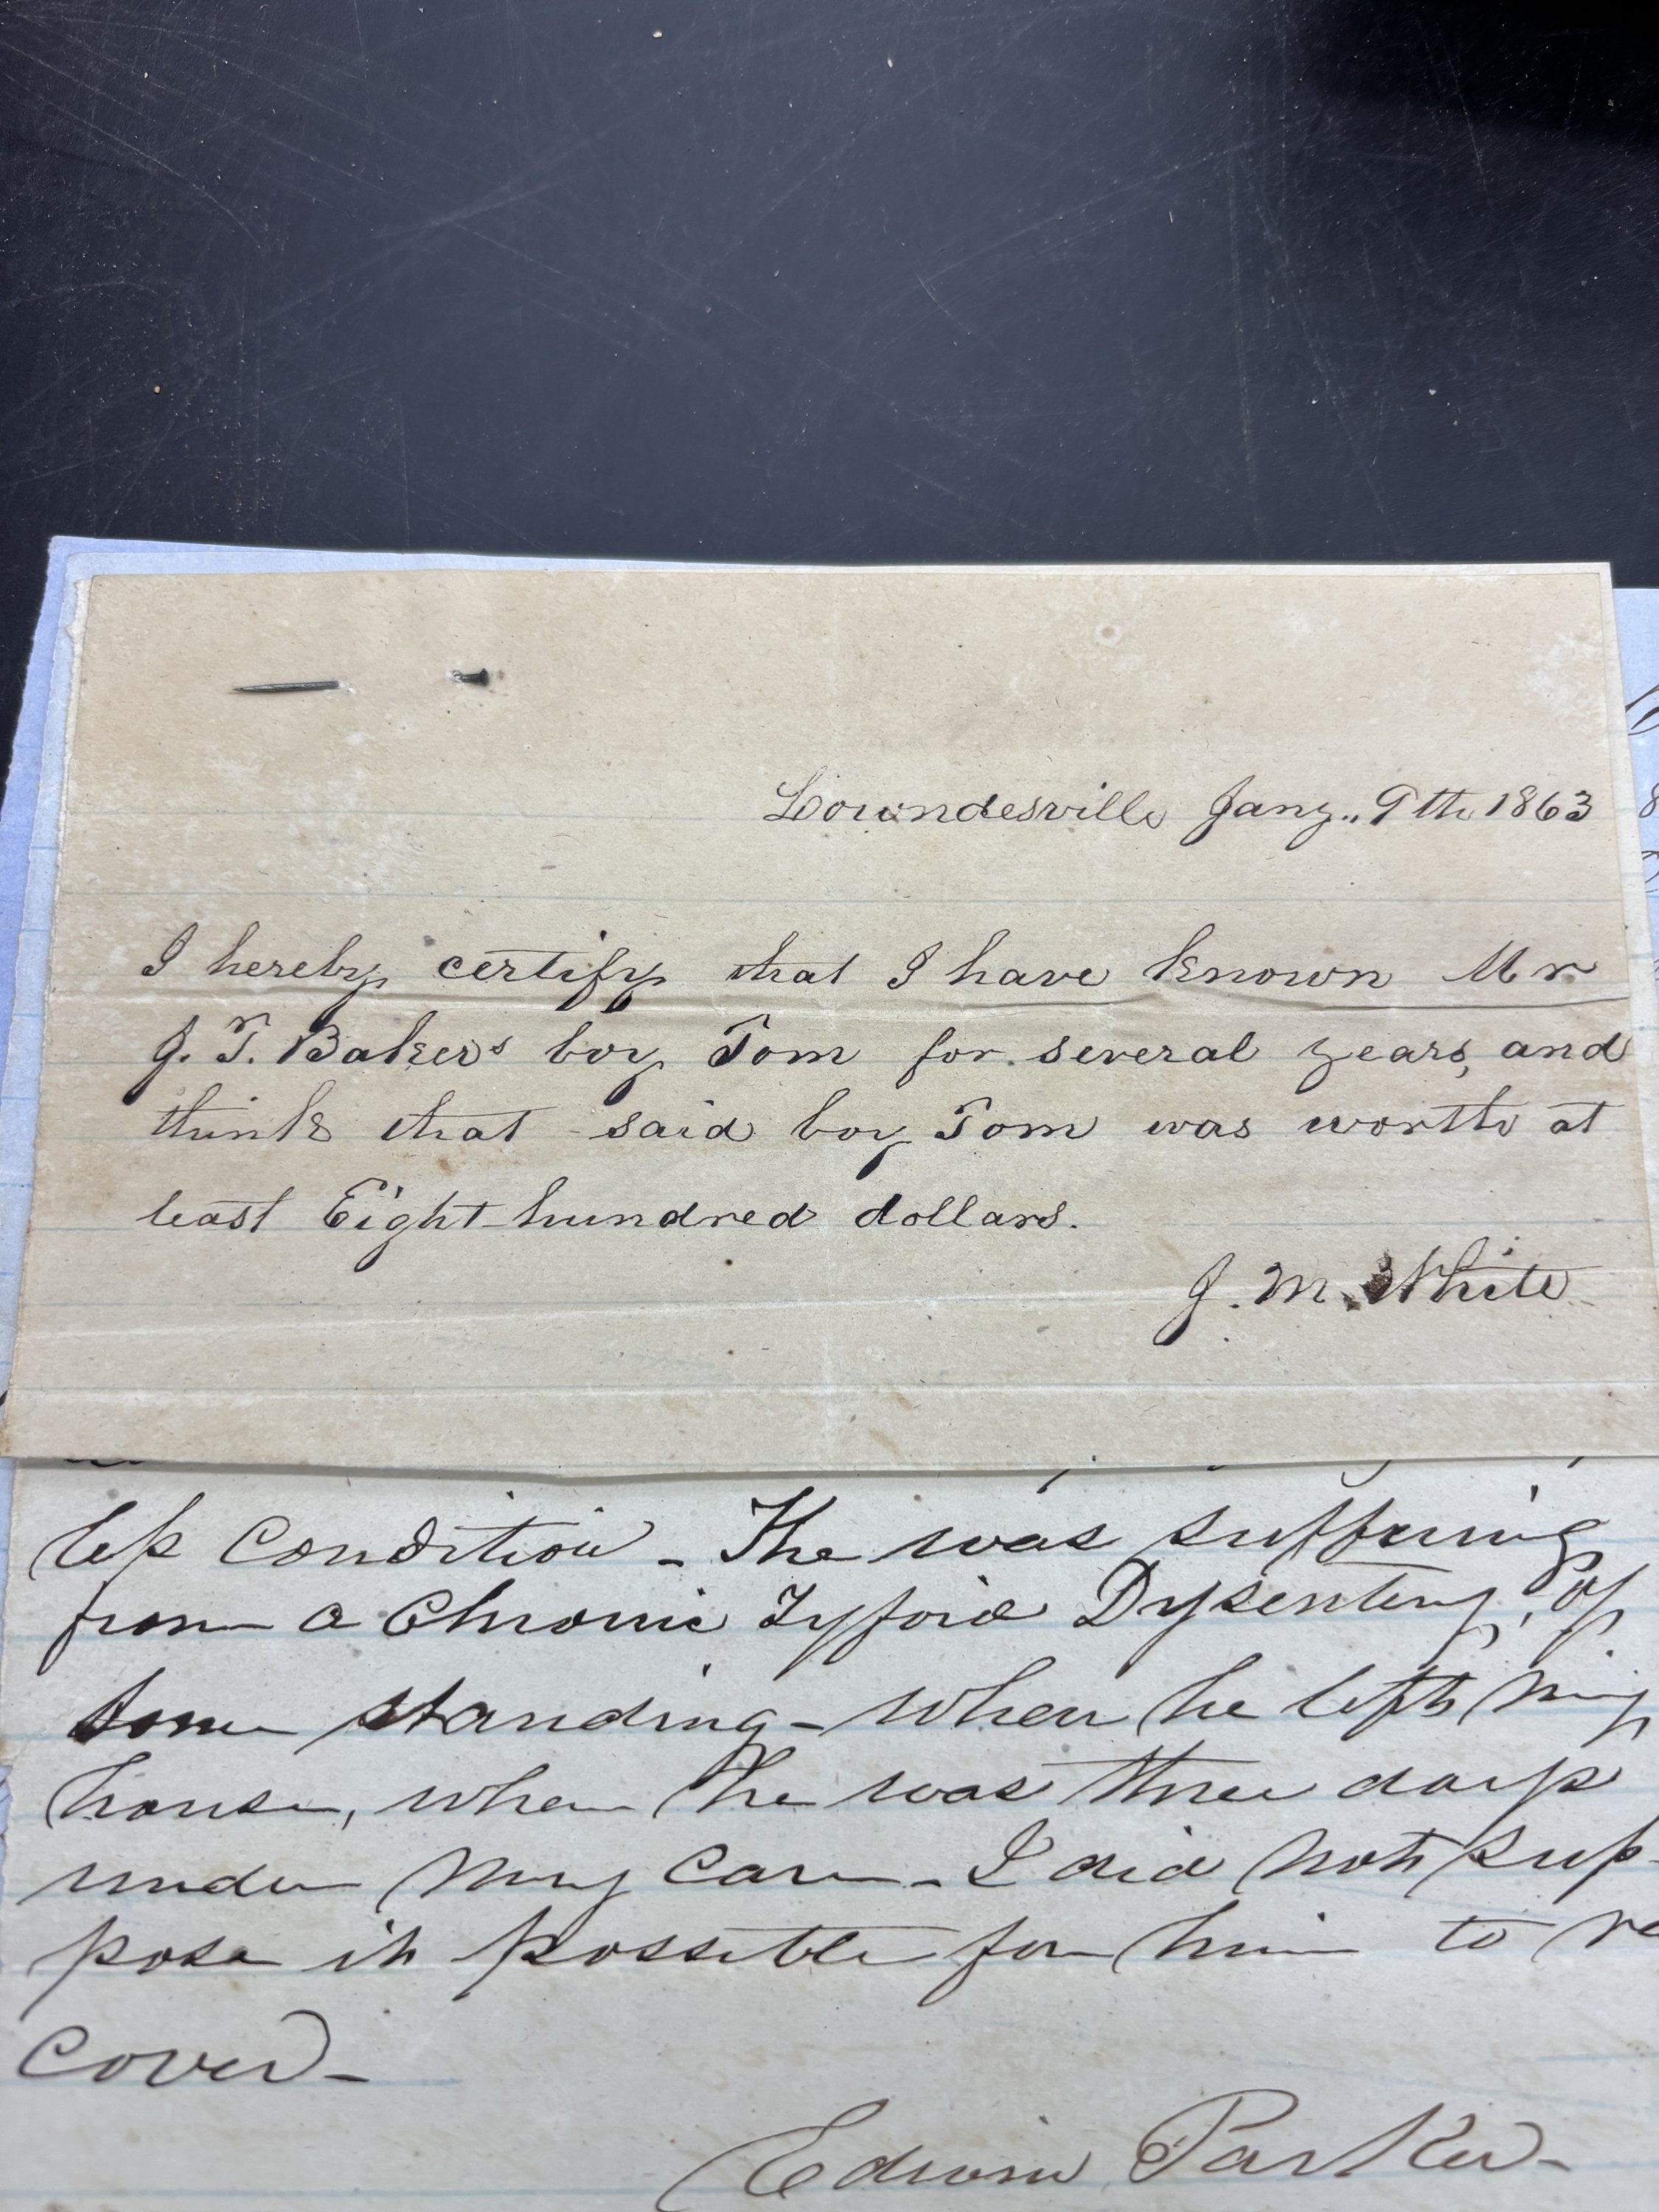 Lowndesville Jany.. 9th 1863
I hereby certify that I have known Mr
J. T. Bakers boy Tom for several years, and
think that said boy Tom was worth at
least Eight hundred dollars.
J. M. White
less Condition - He was suffering
from a Chronic Tyfoid Dysentery, of
some standing - when he left my
house, when he was three days
under my Care - I did not sup-
pose it possible for him to re
cover -
Edwin Parker -